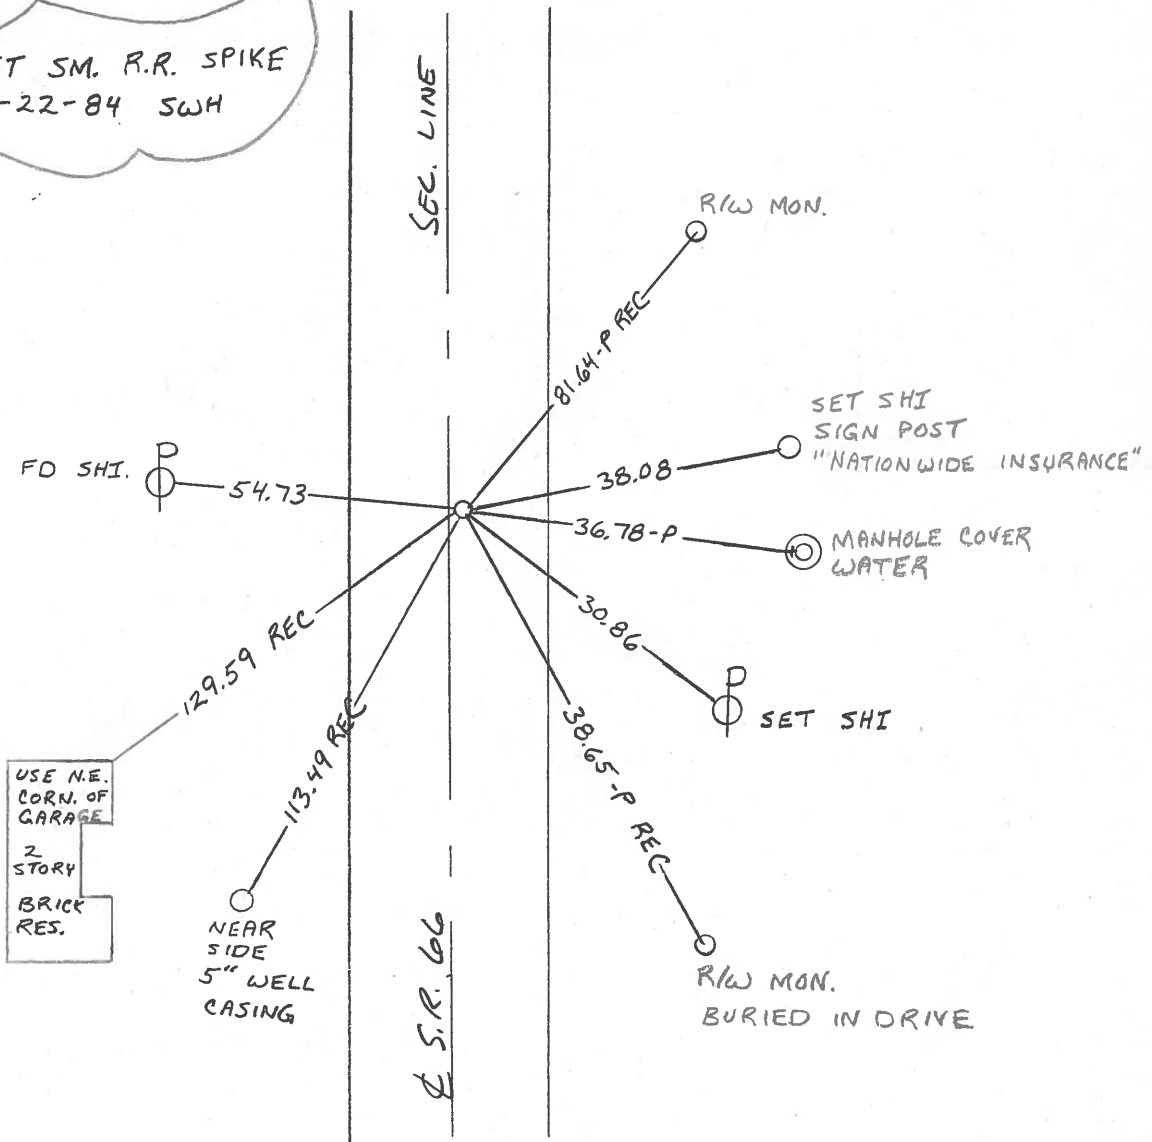 T SM. R.R. SPIKE
-22-84 SWH
SEC. LINE
R/W MON.
81.64-P REC
SET SHI
SIGN POST
"NATIONWIDE INSURANCE"
38.08
FD SHI.
P
54.73
36.78-P
MANHOLE COVER
WATER
30.86
P
SET SHI
129.59 REC
113.49 REC
38.65-P REC
USE N.E.
CORN. OF
GARAGE
2
STORY
BRICK
RES.
NEAR
SIDE
5" WELL
CASING
℄ S.R. 66
R/W MON.
BURIED IN DRIVE